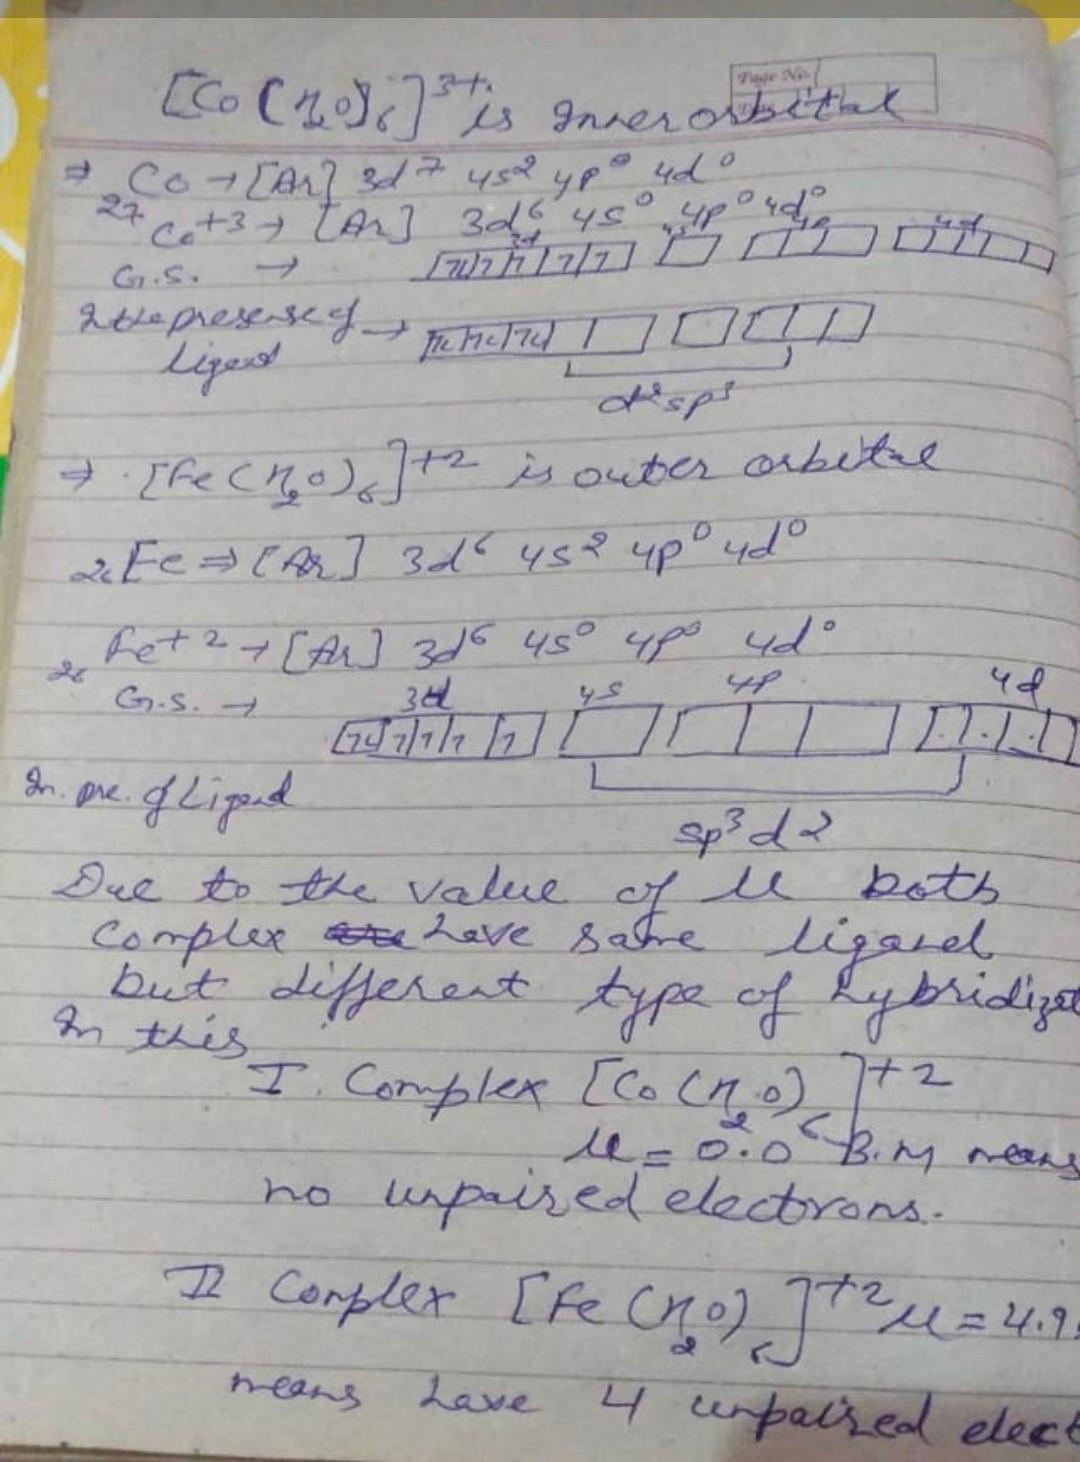 Page No.
[Co(H2O)6]3+ is Inner orbital
⇒ 27Co → [Ar] 3d7 4s2 4p0 4d0
Co+3 → [Ar] 3d6 4s0 4p0 4d0
3d 4s 4p 4d
G.S. →
In the presense of →
Ligand
d2sp3
⇒ [Fe(H2O)6]+2 is outer orbital
26Fe ⇒ [Ar] 3d6 4s2 4p0 4d0
26Fe+2 → [Ar] 3d6 4s0 4p0 4d0
3d 4s 4p 4d
G.S. →
In. pre. of Ligand
sp3d2
Due to the value of μ both
complex have same ligand
but different type of hybridizat
In this
I. Complex [Co(H2O)6]+2
μ = 0.0 B.M means
no unpaired electrons.
II Complex [Fe(H2O)6]+2 μ = 4.9
means have 4 unpaired elect